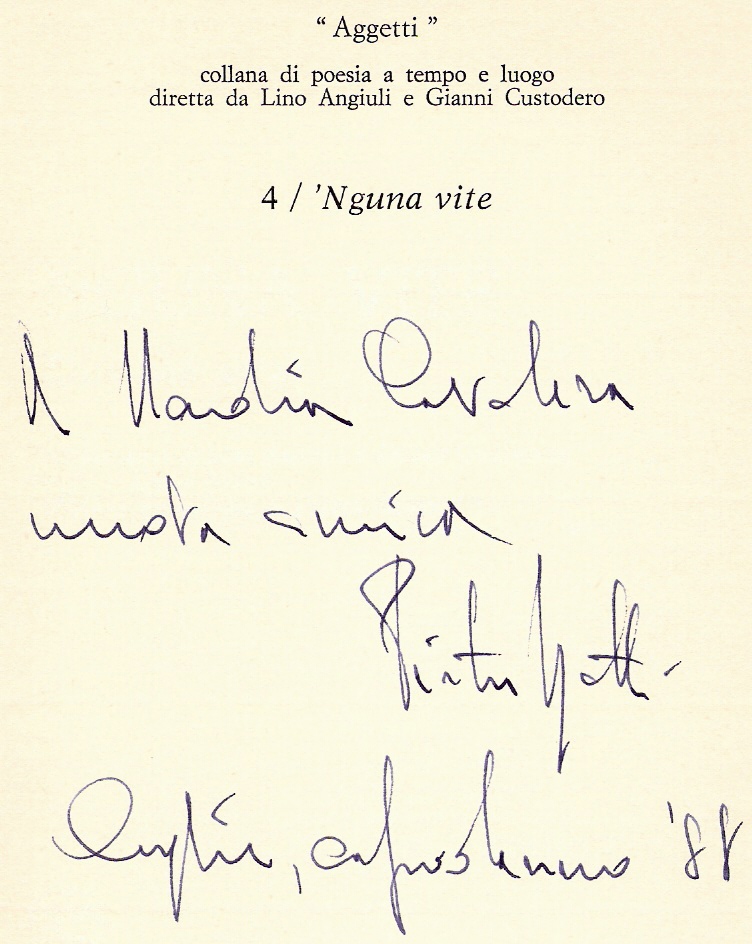 “ Aggetti ”
collana di poesia a tempo e luogo
diretta da Lino Angiuli e Gianni Custodero
4 / 'Nguna vite
A Nandina Cavalera
nuova amica
Pietro Gatti
Ceglie, capodanno '88